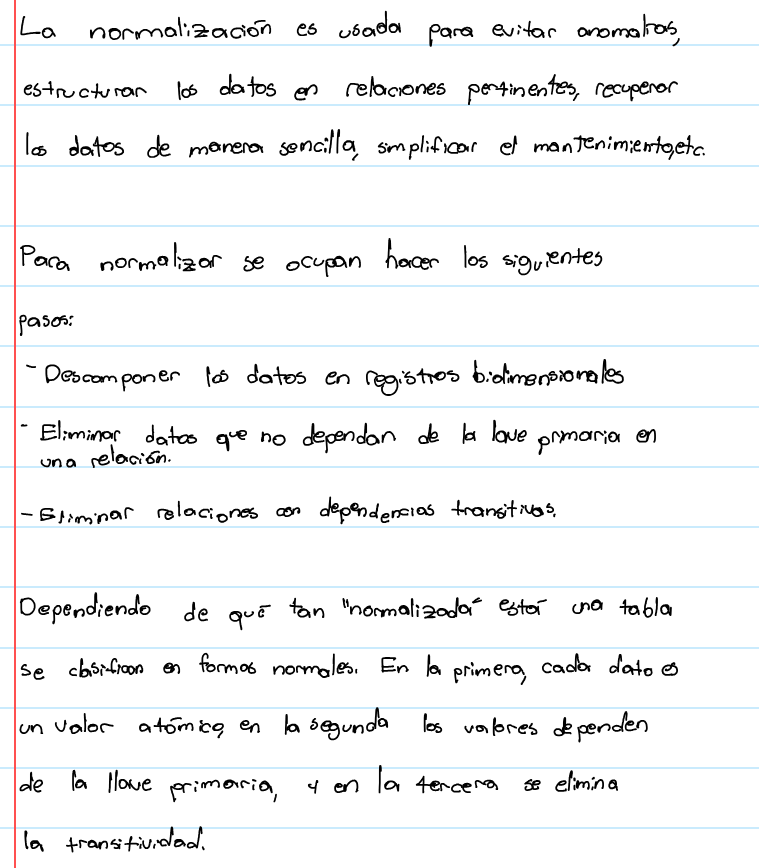 La normalización es usada para evitar anomalías,
estructurar los datos en relaciones pertinentes, recuperar
los datos de manera sencilla, simplificar el mantenimiento,etc.
Para normalizar se ocupan hacer los siguientes
pasos:
- Descomponer los datos en registros bidimensionales
- Eliminar datos que no dependan de la lave primaria en
una relación.
- Eliminar relaciones con dependencias transitivas.
Dependiendo de qué tan "normalizada" está una tabla
se clasifican en formas normales. En la primera, cada dato es
un valor atómico, en la segunda los valores dependen
de la llave primaria, y en la tercera se elimina
la transitividad.